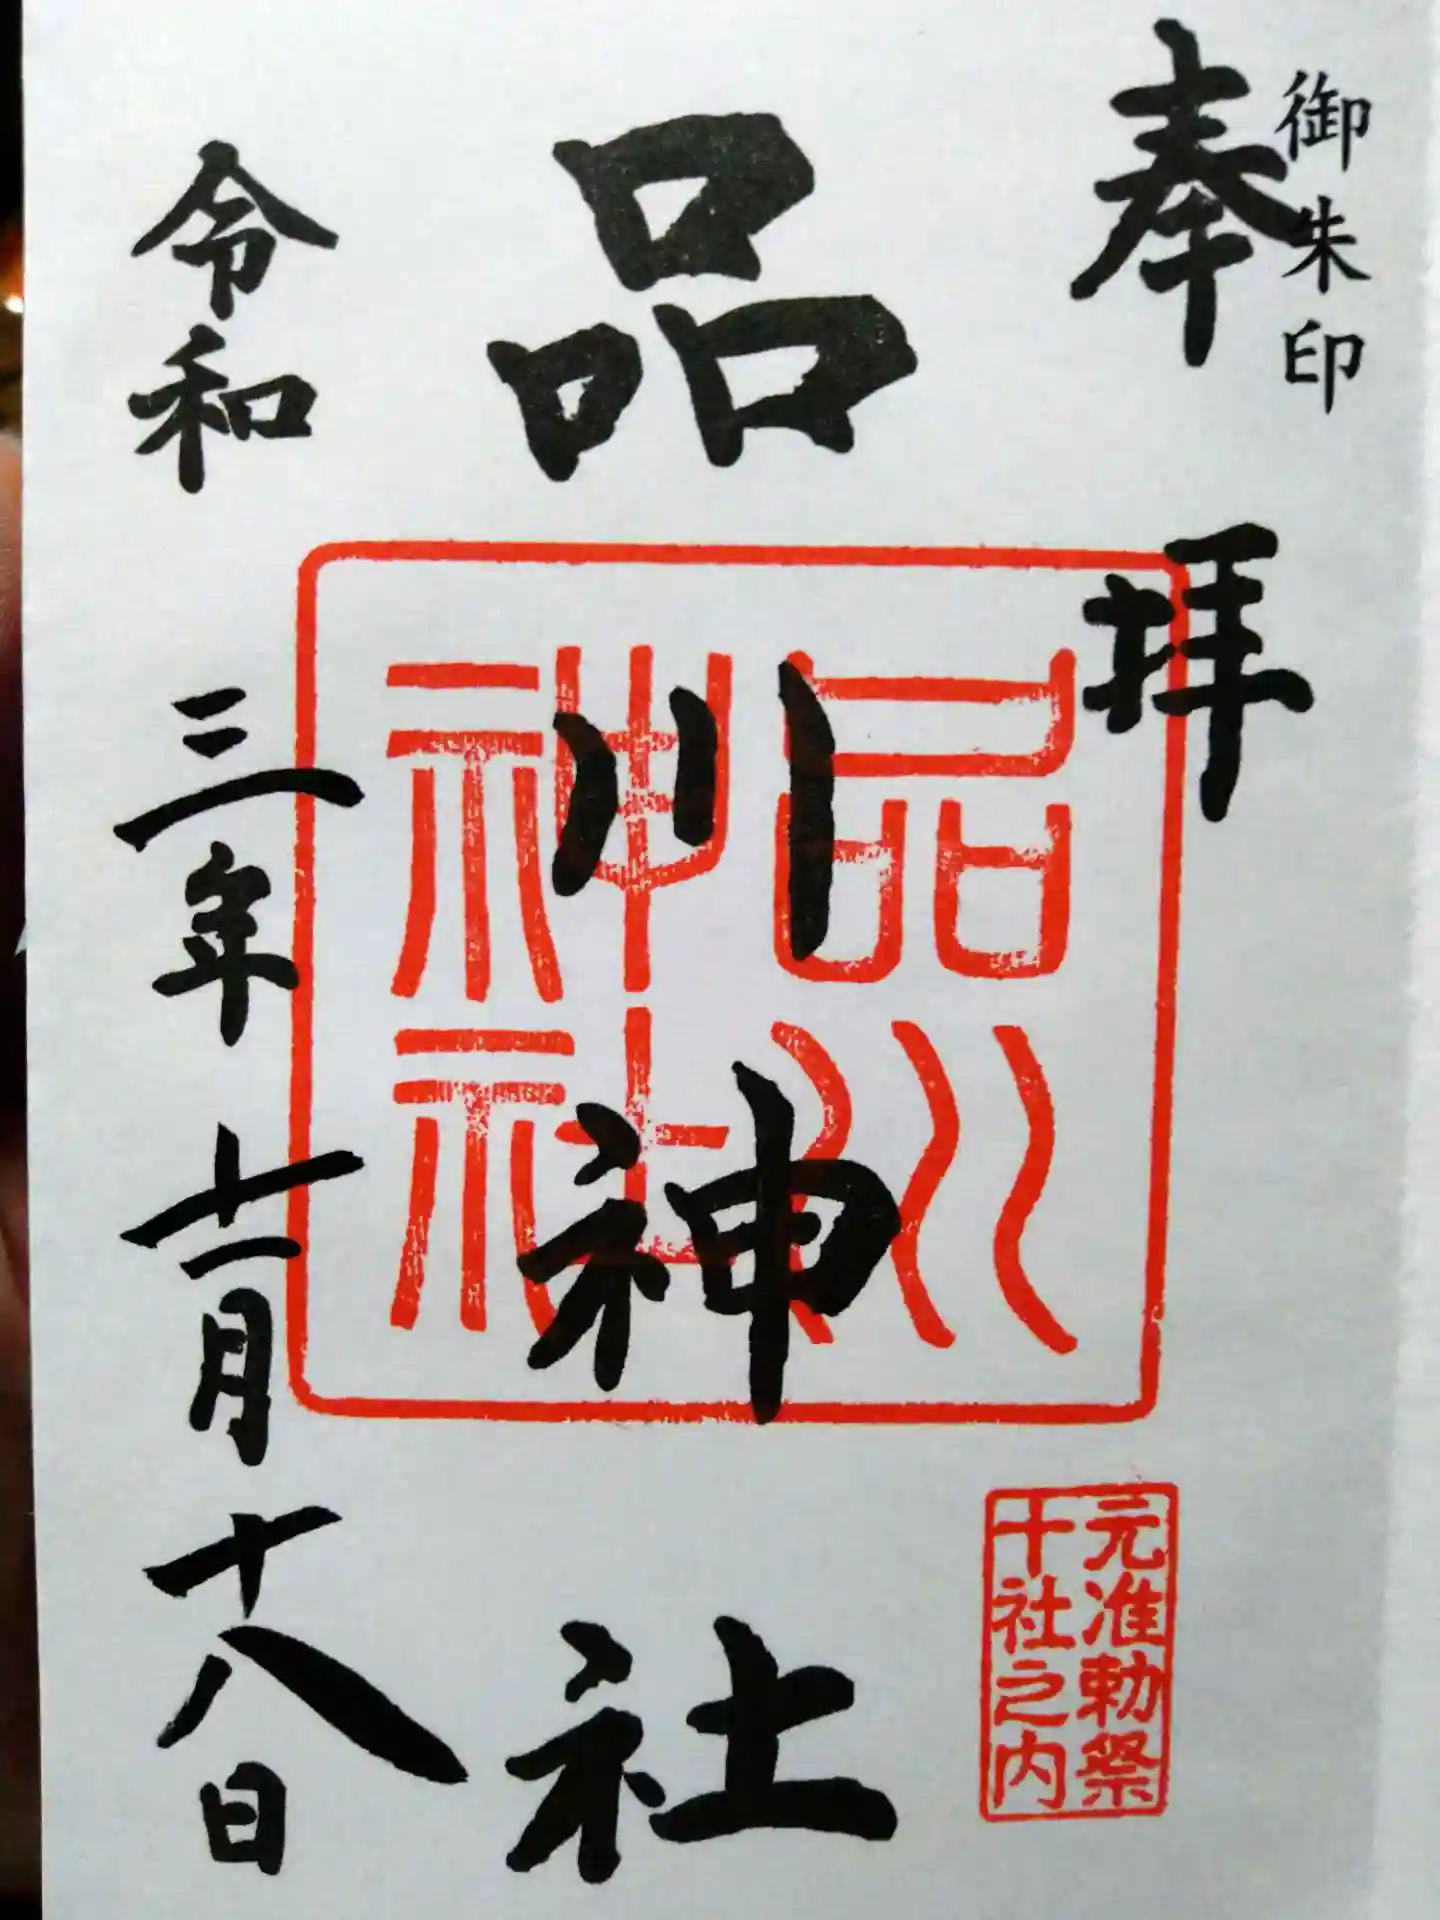 御朱印
奉拝
品川神社
品川
神社
元准勅祭
十社之内
令和三年十一月十八日